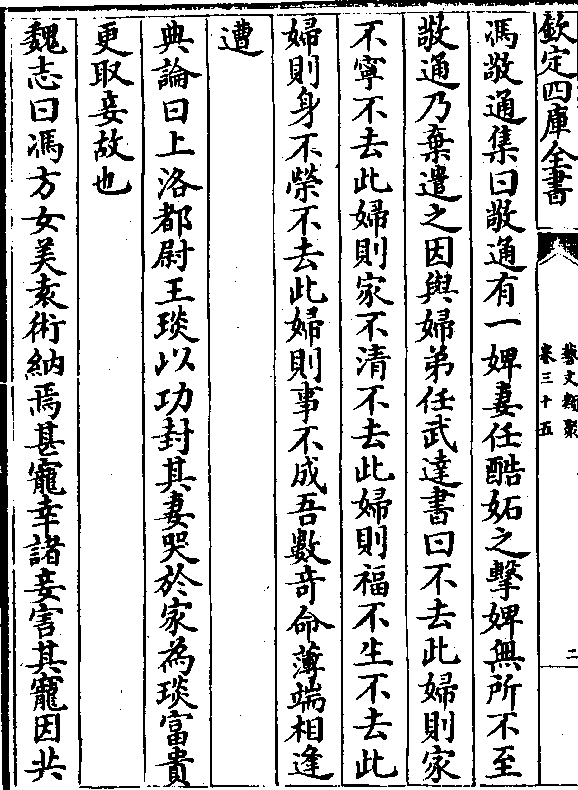 欽定四庫全書
藝文類聚
卷三十五
二
馮敬通集曰敬通有一婢妻任酷妬之擊婢無所不至
敬通乃棄遣之因與婦弟任武達書曰不去此婦則家
不寧不去此婦則家不清不去此婦則福不生不去此
婦則身不榮不去此婦則事不成吾數奇命薄端相逢
遭
典論曰上洛都尉王琰以功封其妻哭於家為琰富貴
更取妾故也
魏志曰馮方女美袁術納焉甚寵幸諸妾害其寵因共